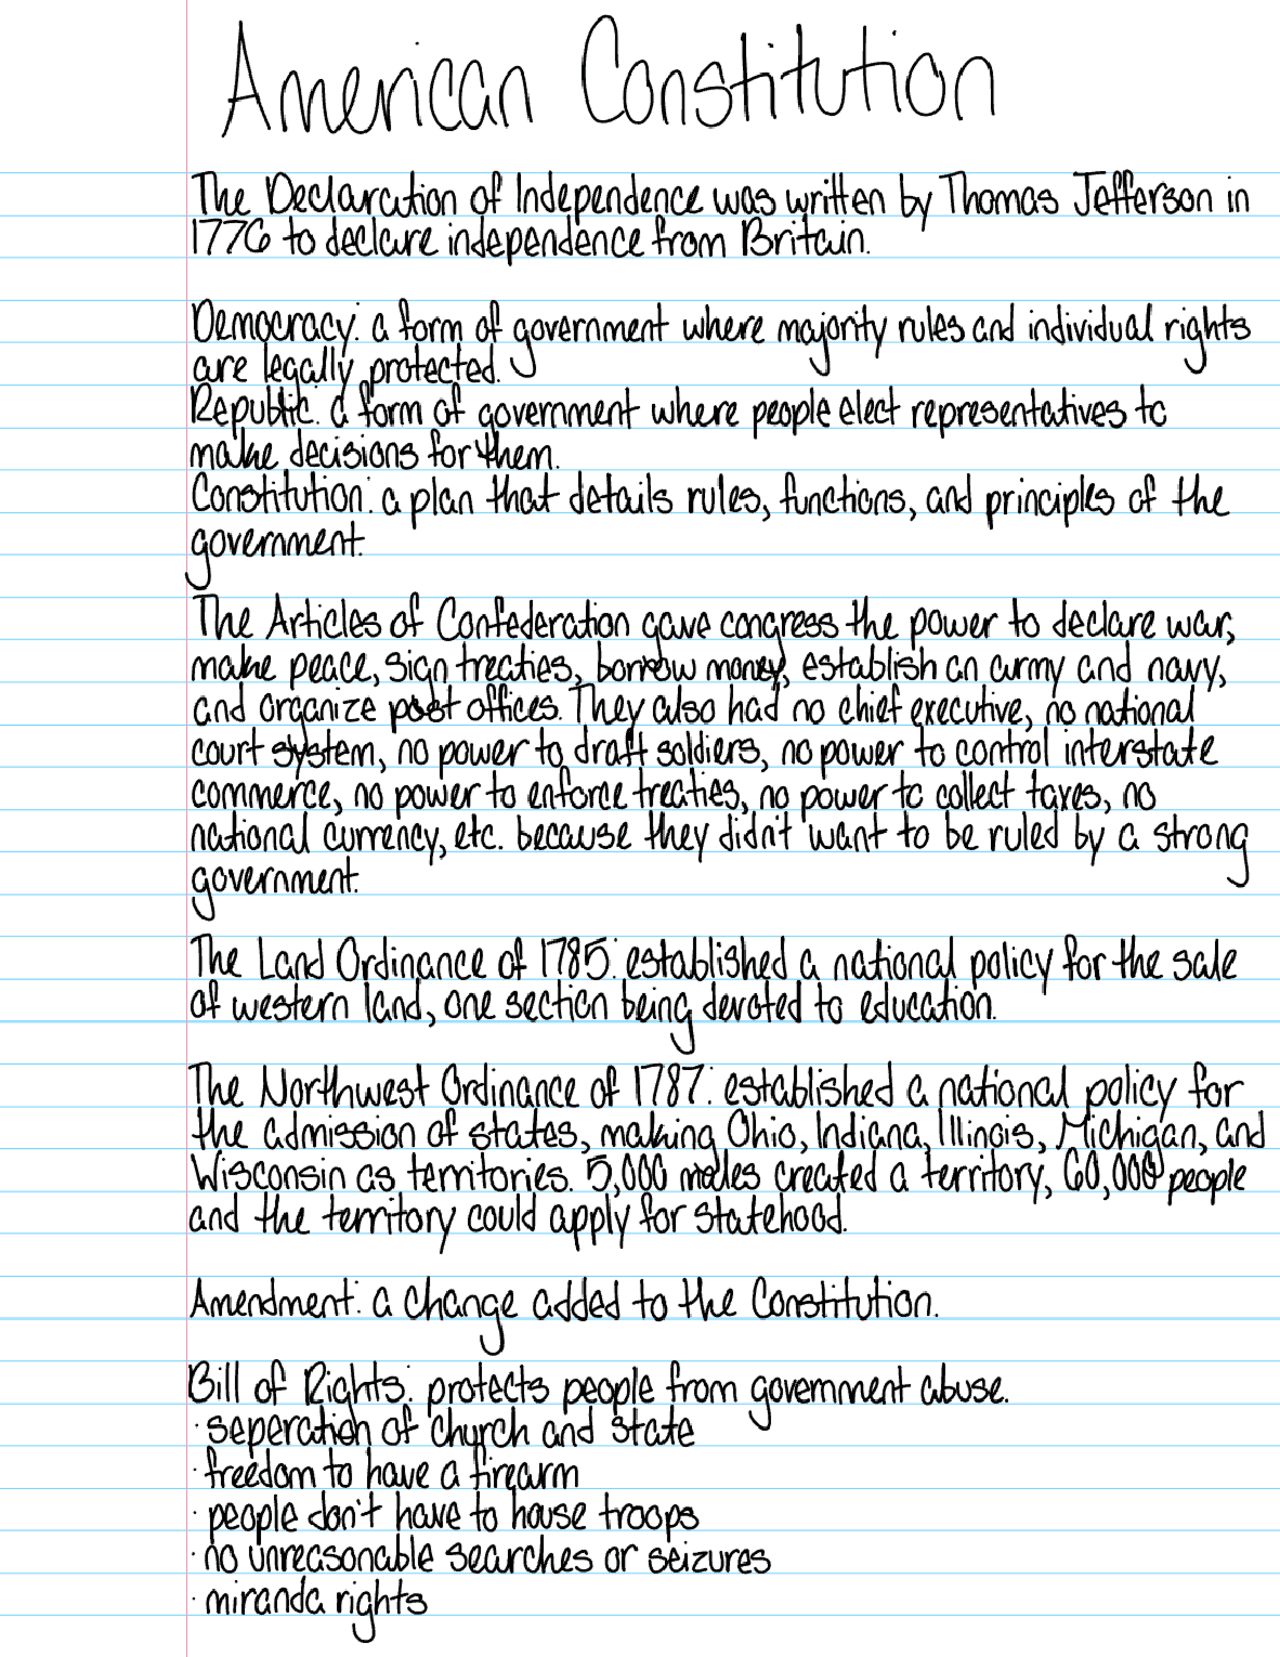 American Constitution
The Declaration of Independence was written by Thomas Jefferson in
1776 to declare independence from Britain.
Democracy: a form of government where majority rules and individual rights
are legally protected.
Republic: a form of government where people elect representatives to
make decisions for them.
Constitution: a plan that details rules, functions, and principles of the
government.
The Articles of Confederation gave congress the power to declare war,
make peace, sign treaties, borrow money, establish an army and navy,
and organize post offices. They also had no chief executive, no national
court system, no power to draft soldiers, no power to control interstate
commerce, no power to enforce treaties, no power to collect taxes, no
national currency, etc. because they didn't want to be ruled by a strong
government.
The Land Ordinance of 1785: established a national policy for the sale
of western land, one section being devoted to education.
The Northwest Ordinance of 1787: established a national policy for
the admission of states, making Ohio, Indiana, Illinois, Michigan, and
Wisconsin as territories. 5,000 males created a territory, 60,000 people
and the territory could apply for statehood.
Amendment: a change added to the Constitution.
Bill of Rights: protects people from government abuse.
· seperation of church and state
· freedom to have a firearm
· people don't have to house troops
· no unreasonable searches or seizures
· miranda rights